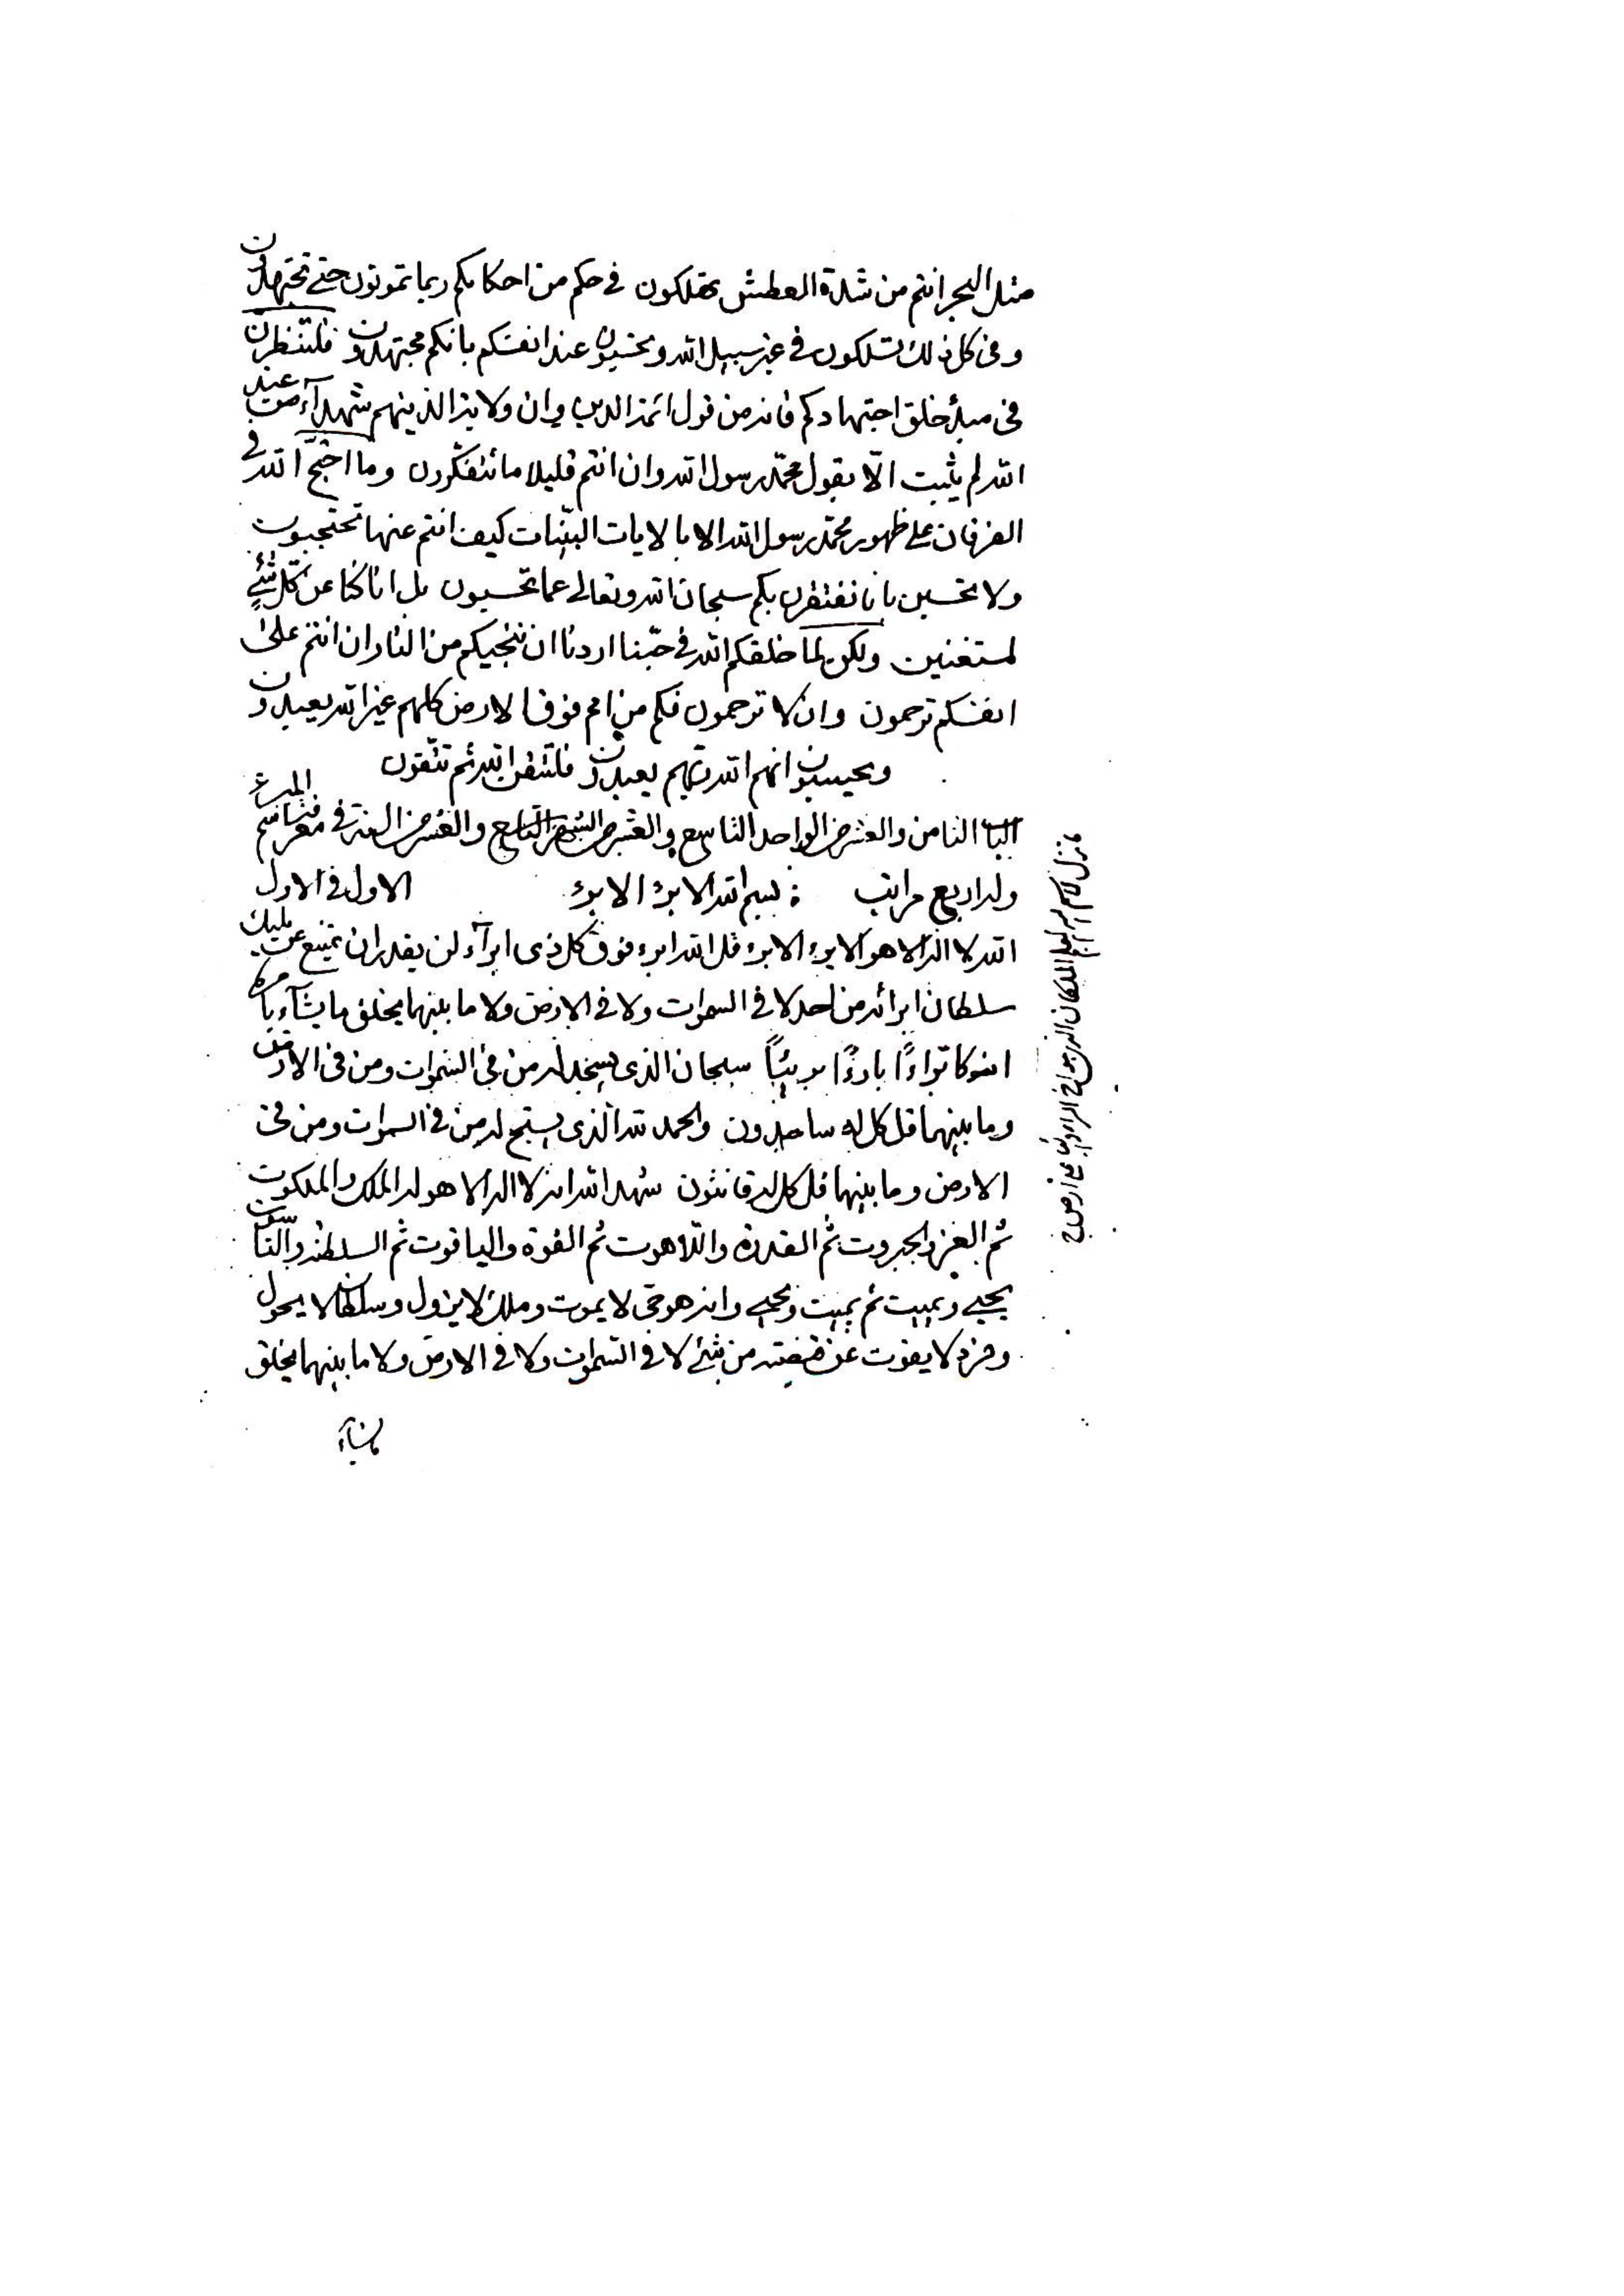 مثل البحر انتم من شدة العطش تهلكون في حكم من احكامكم ربما تموتون حتى تجتهدون
وفى كل ذلك تسلكون في غير سبيل الله وتحسبون عند انفسكم بانكم مجتهدون فلتنظرن
فى مبدء خلق اجتهادكم فانه من قول ائمة الدين وان ولاية الذينهم شهدآء من عند
الله لم يثبت الّا بقول محمّد رسول الله وان انتم قليلا ما تتفكّرون وما احتجّ الله في
الفرقان على ظهور محمّد رسول الله الا بالايات البيّنات كيف انتم عنها تحتجبون
ولا تحسبن بانا نفتقرن بكم سبحان الله وتعالى عما تحسبون بل انا كنا عن كلّ شئ
لمستغنين ولكن لما خلقكم الله في حبّنا اردنا ان ننجيكم من النار ان انتم على
انفسكم ترحمون وان لا ترحمون فكم من امم فوق الارض كلهم غير الله يعبدون
ويحسبون انهم الله ربهم يعبدون فلتتقن الله ثم تتقون
الباب الثامن والعشر من الواحد التاسع والعشر من الشهر التاسع والعشر من السنة في معرفة اسم المبرئ
وله اربع مراتب : بسم الله الابرء الابرء الاول في الاول
الله لا اله الا هو الابرء الابرء قل الله ابرء فوق كل ذى ابرآء لن يقدر ان يمتنع عن مليك
سلطان ابرائه من احد لا في السموات ولا في الارض ولا ما بينهما يخلق ما يشآء بامره
انه كان برّاءً بارءًا بريئاً سبحان الذى يسجد له من في السموات ومن فى الارض
وما بينهما قل كل له ساجدون والحمد لله الذى يسبح له من في السموات ومن في
الارض وما بينهما قل كل له قانتون شهد الله انه لا اله الا هو له الملك والملكوت
ثم العز والجبروت ثم القدرة واللاهوت ثم القوة والياقوت ثم السلطنة والناسوت
يحيي ويميت ثم يميت ويحيي وانه هو حى لا يموت وملك لا يزول وسلطان لا يحول
وفرد لا يفوت عن قبضته من شئ لا في السموات ولا في الارض ولا ما بينهما يخلق
ما يشآء